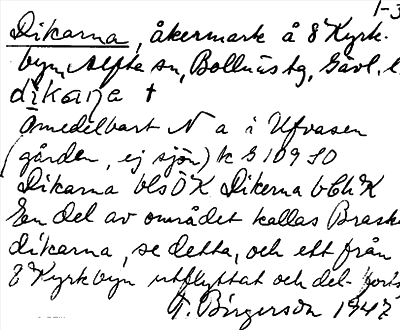 1-3
Dikarna, åkermark å 8 Kyrk-
byn, Alfta sn, Bollnäs tg, Gävl. l.
dikaṇa †
Omedelbart N a i Ufvasen
(gården, ej sjön) k S 109 SO
Dikarna bls ÖK Dikerna bChK
En del av området kallas Brask-
dikarna, se detta, och ett från
8 Kyrkbyn utflyttat och del-
T. Birgerson 1947